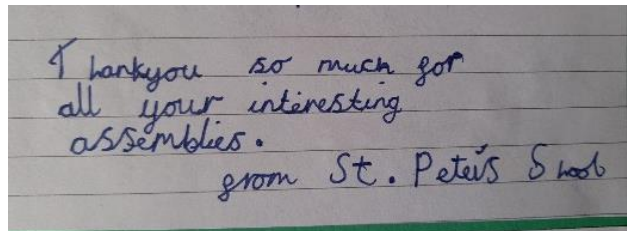 Thankyou so much for
all your interesting
assemblies.
from St. Peter's Shool